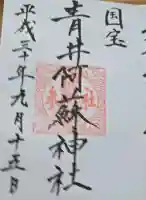 国宝
青井阿蘇神社
平成三十年九月十五日